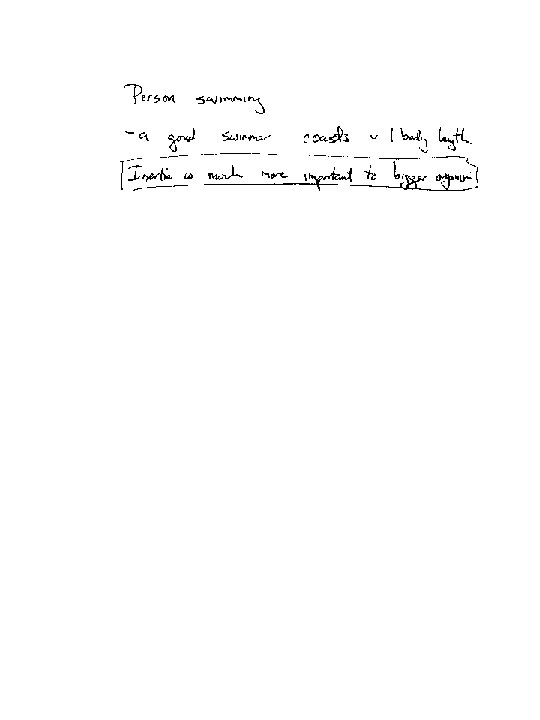 Person swimming
- a good swimmer coasts ~ 1 body length
Inertia is much more important to bigger organisms